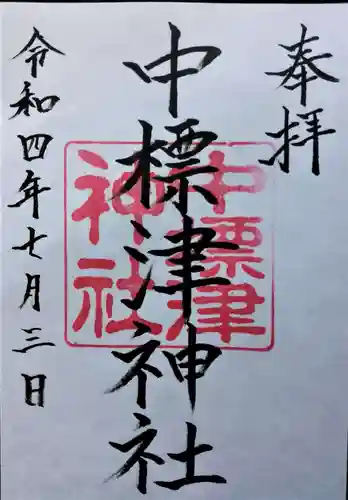 奉拝
中標津神社
中標津
神社
令和四年七月三日